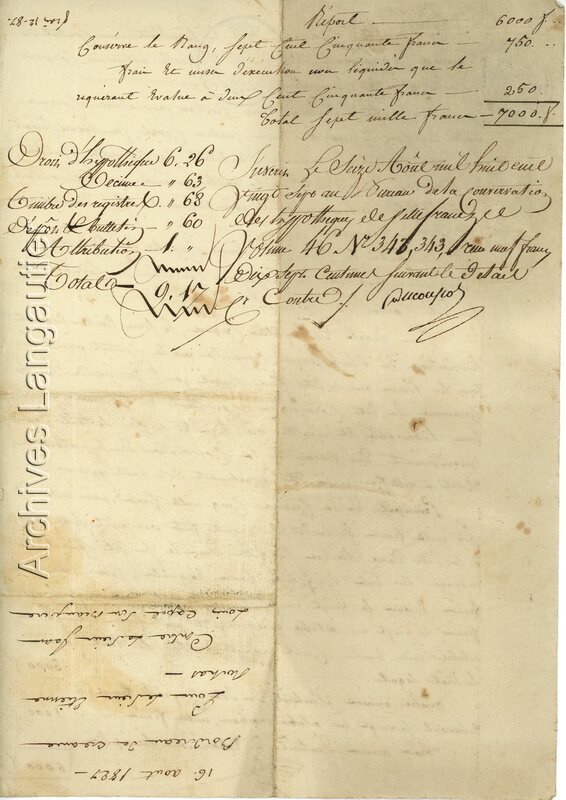 Report — 6000 f.
Conserve le Rang, sept Cent Cinquante francs — 750..
frais Et mises d'execution non liquidés que le
requerant Evalue à deux Cent Cinquante francs — 250.
Total sept mille francs — 7000. f.
Droit d'hypothèque 6. 26
Décime — " 63
Timbre des registres " 68
Dépôt & Bulletin " 60
Attribution — 1 "
Total
9. 17
Inscrit Le Seize Août mil huit cent
vingt sept au Bureau de la Conservation
des hyppothèques de
Volume 46 N° 343, 343, neuf francs
Dix sept Centimes suivant le detail
Ci Contre
16 août 1827 —
Bordreau de creance
Pour le sieur Etienne
Contre le sieur Jean
Louis
Archives Langautier